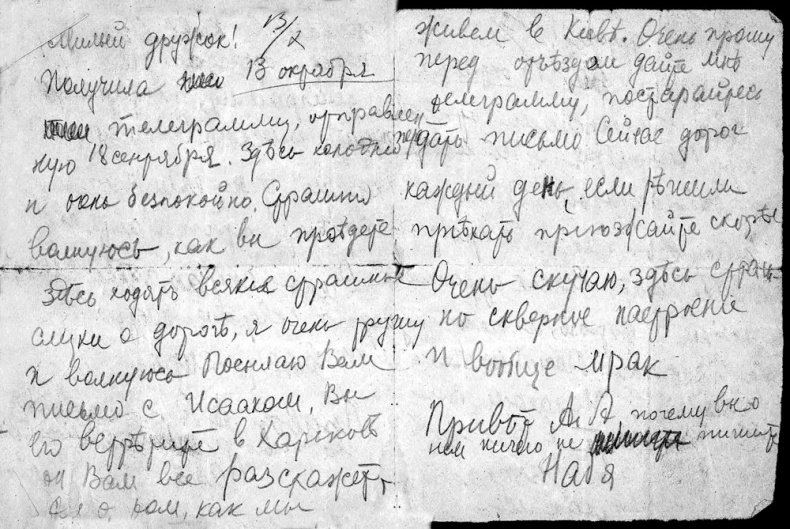 Милый дружок! 13/X
Получила 13 октября
телеграмму, отправлен
ную 18 сентября. Здѣсь холодно
и очень безпокойно. Страшно
волнуюсь, как вы проѣдете
Здѣсь ходять всякия страшные
слухи о дорогѣ, я очень грущу
и волнуюсь Посылаю Вам
письмо с Исааком, Вы
его встрѣтите в Харьковѣ
он Вам все разскажет,
о том, как мы
живем в Киевѣ. Очень прошу
перед отъѣздом дайте мнѣ
телеграмму, постарайтесь
передать письмо Сейчас дорог
каждый день, если рѣшили
приѣхать приѣзжайте скорѣе
Очень скучаю, здѣсь страш-
но скверное настроение
и вообще мрак
Привѣт А. А. почему вы о
нем ничего не пишите
Надя